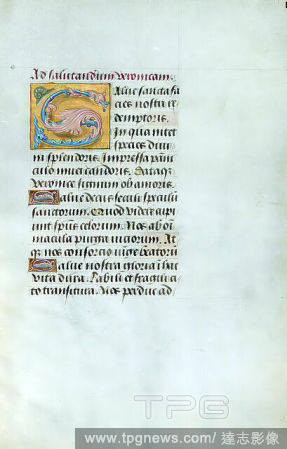 Ad salutandum veronicam.
Salve sancta fa
cies nostri re
demptoris.
In qua nitet
species divi
ni splendoris. Impressa pãni
culo nivei candoris. Dataqꝫ
veronice signum ob amoris.
Salve decus seculi speculũ
sanctorum. Quod videre cupi
unt spũs celorum. Nos ab oĩ
macula purga viciorum. At
qꝫ nos consorcio iũge beatorũ
Salve nostra gloria ĩ hac
vita dura. Labili et fragili ci
to transitura. Nos perduc ad
TPG
www.tpgnews.com / 達志影像